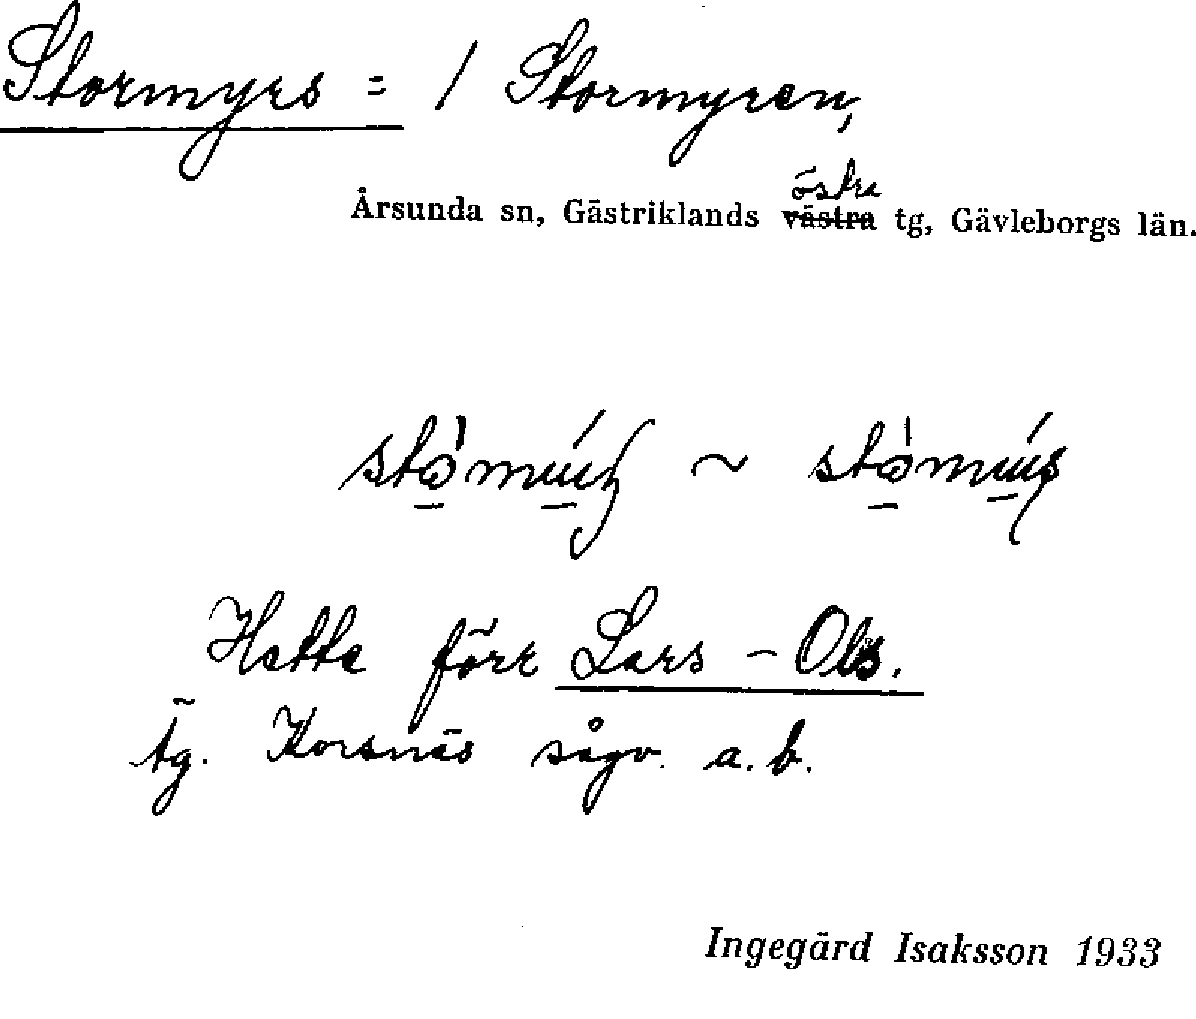 Stormyrs = / Stormyren,
östra
Årsunda sn, Gästriklands västra tg, Gävleborgs län.
~
Hette förr Lars - Ols.
tg. Korsnäs sågv. a. b.
Ingegärd Isaksson 1933